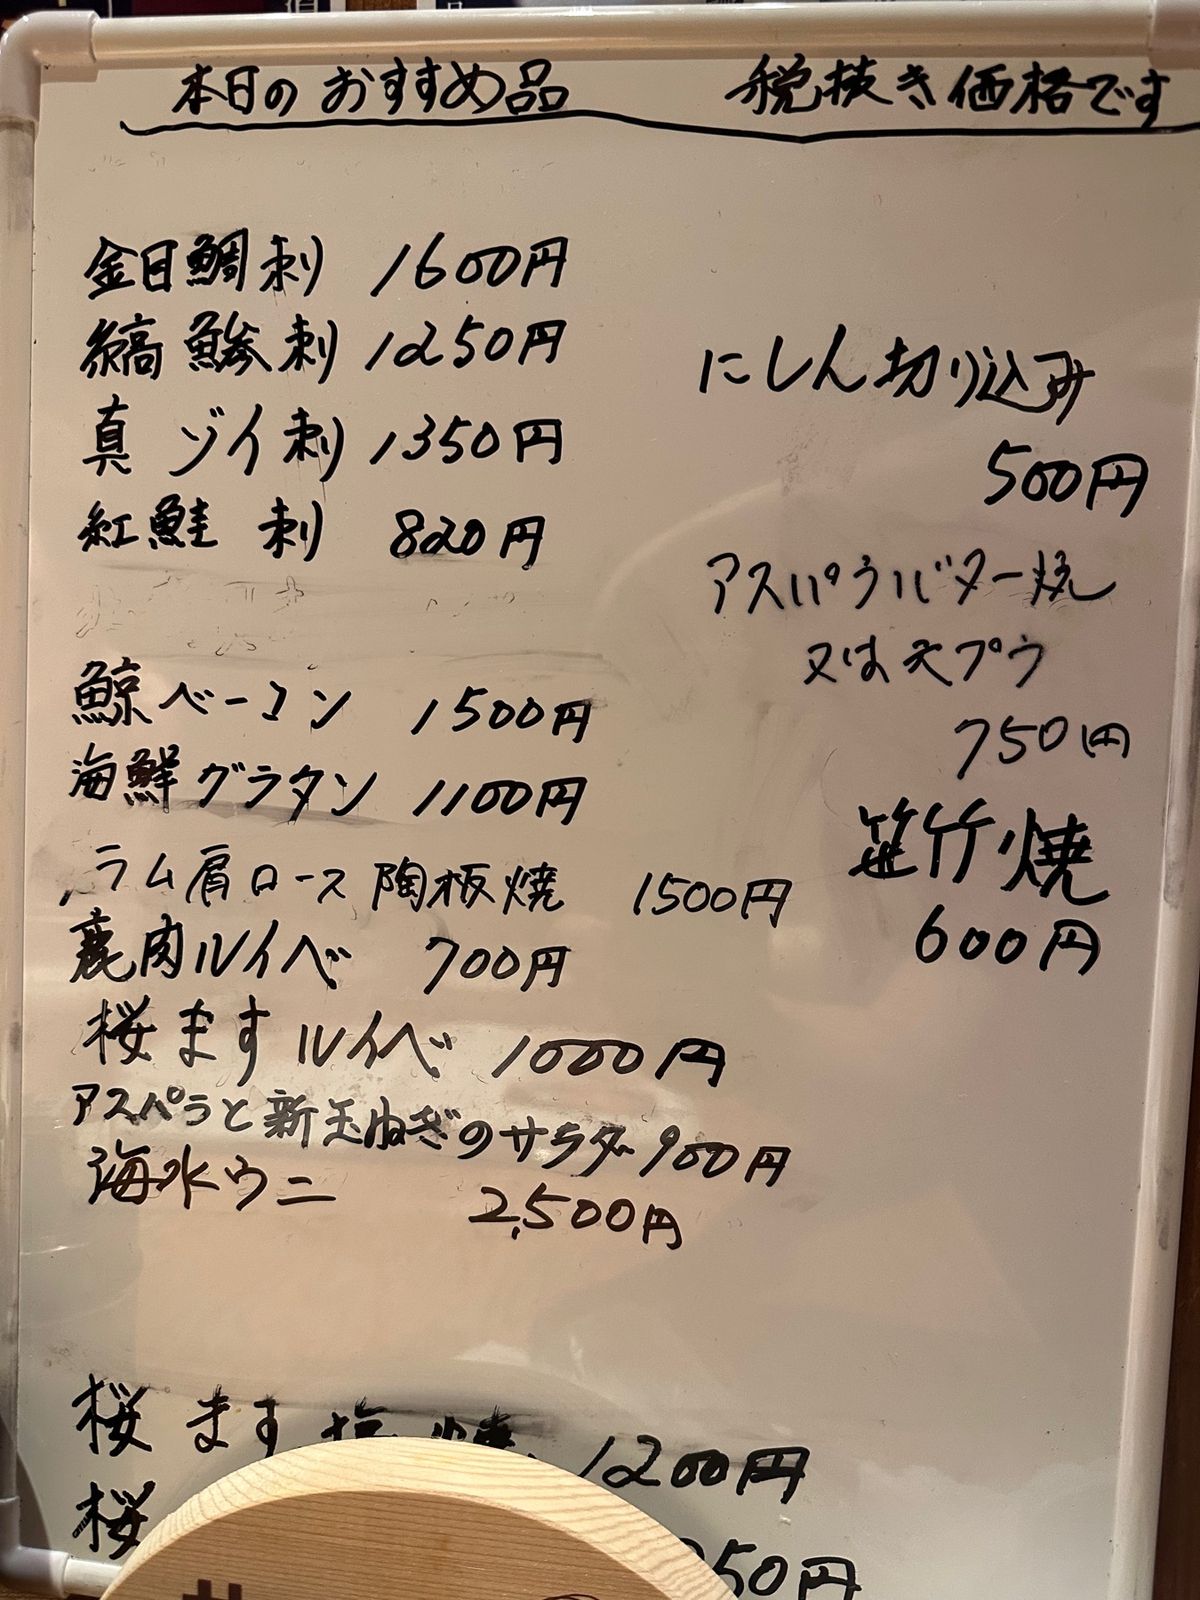 本日のおすすめ品 税抜き価格です
金目鯛刺 1600円
縞鯵刺 1250円
真ゾイ刺 1350円
紅鮭刺 820円
鯨ベーコン 1500円
海鮮グラタン 1100円
ラム肩ロース陶板焼 1500円
鹿肉ルイベ 700円
桜ますルイベ 1000円
アスパラと新玉ねぎのサラダ 900円
海水ウニ 2,500円
桜ます塩焼 1200円
桜 50円
にしん切り込み
500円
アスパラバター焼
又は天プラ
750円
笹竹焼
600円